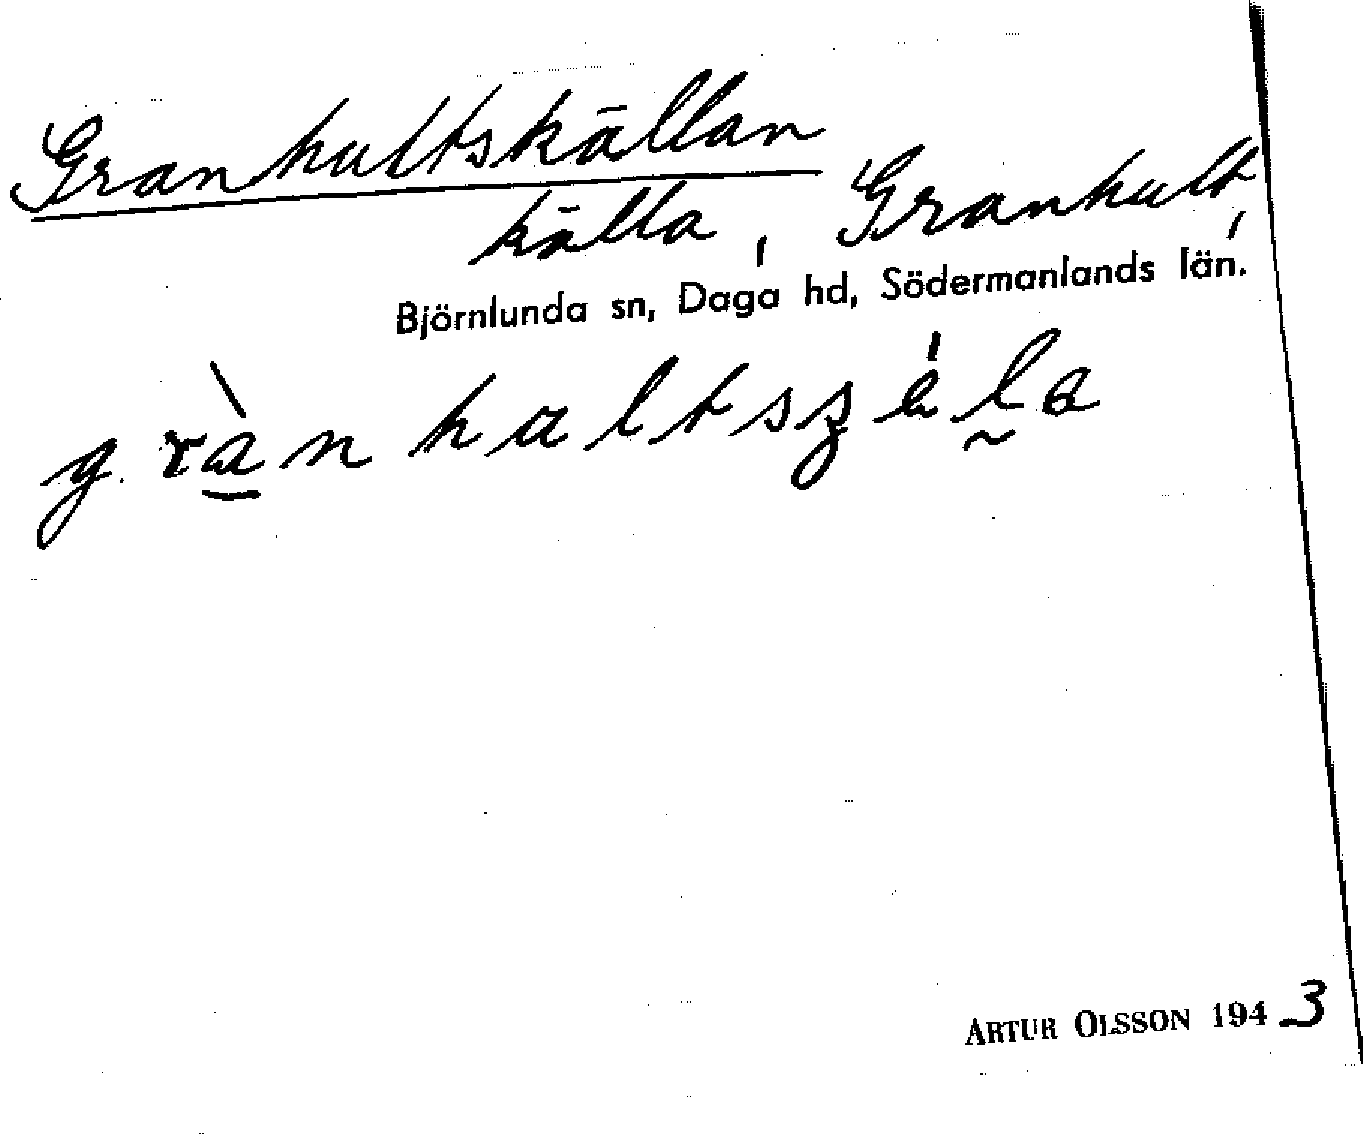 Granhultskällan
källa, Granhult,
Björnlunda sn, Daga hd, Södermanlands län.
ARTUR OLSSON 1943